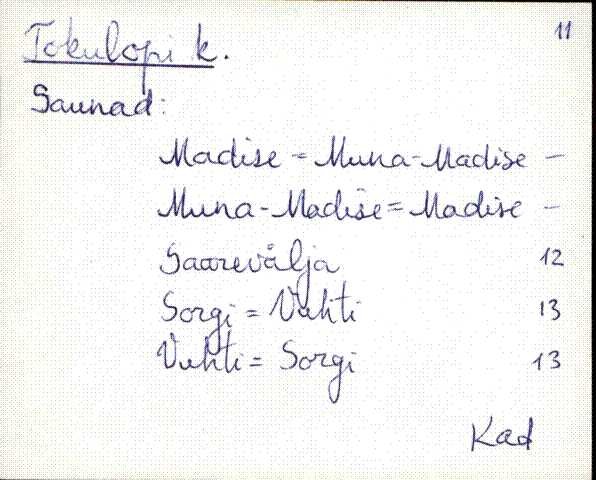 Tokulopi k. 11
Saunad:
Madise = Muna-Madise –
Muna-Madise = Madise –
Saarevälja 12
Sorgi = Vahti 13
Vahti = Sorgi 13
Kad